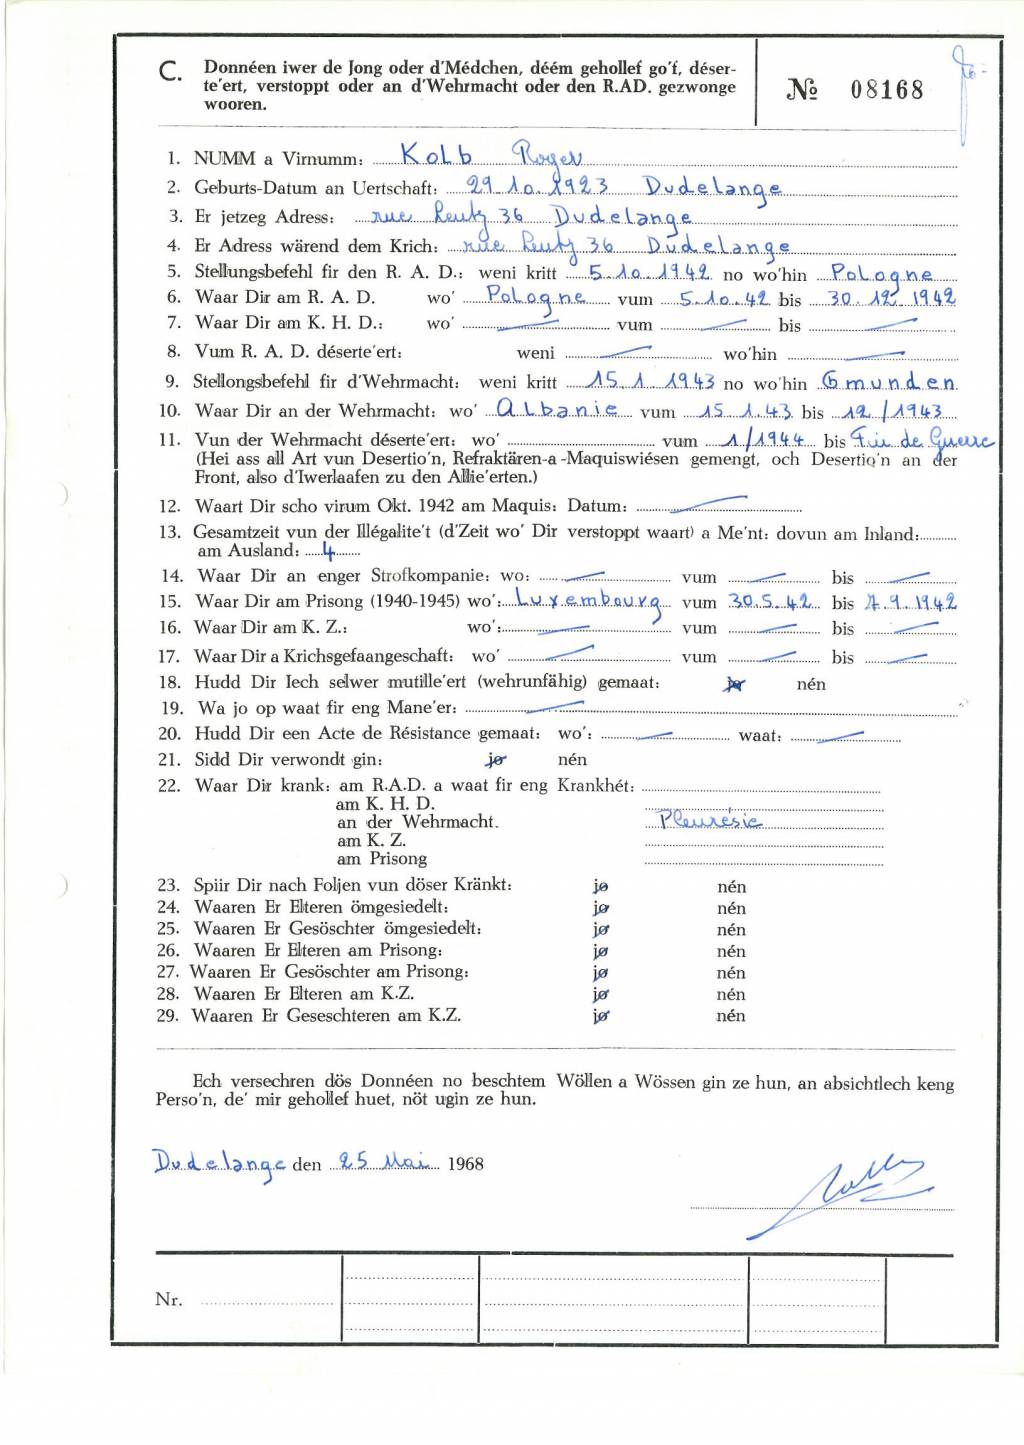 C. Donnéen iwer de Jong oder d'Médchen, déém gehollef go'f, déser-
te'ert, verstoppt oder an d'Wehrmacht oder den R.AD. gezwonge
wooren.
№ 08168
1. NUMM a Virnumm: Kolb Roger
2. Geburts-Datum an Uertschaft: 29.10.1923 Dudelange
3. Er jetzeg Adress: rue Lentz 36 Dudelange
4. Er Adress wärend dem Krich: rue Lentz 36 Dudelange
5. Stellungsbefehl fir den R. A. D.: weni kritt 5.10.1942 no wo'hin Pologne
6. Waar Dir am R. A. D. wo' Pologne vum 5.10.42 bis 30.12.1942
7. Waar Dir am K. H. D.: wo' — vum — bis —
8. Vum R. A. D. déserte'ert: weni — wo'hin —
9. Stellongsbefehl fir d'Wehrmacht: weni kritt 15.1.1943 no wo'hin Gmunden
10. Waar Dir an der Wehrmacht: wo' Albanie vum 15.1.43 bis 12/1943
11. Vun der Wehrmacht déserte'ert: wo' vum 1/1944 bis Fin de Guerre
(Hei ass all Art vun Desertio'n, Refraktären-a-Maquiswiésen gemengt, och Desertio'n an der
Front, also d'Iwerlaafen zu den Allie'erten.)
12. Waart Dir scho virum Okt. 1942 am Maquis: Datum: —
13. Gesamtzeit vun der Illégalite't (d'Zeit wo' Dir verstoppt waart) a Me'nt: dovun am Inland:
am Ausland: 4
14. Waar Dir an enger Strofkompanie: wo: — vum — bis —
15. Waar Dir am Prisong (1940-1945) wo': Luxembourg vum 30.5.42 bis 7.9.1942
16. Waar Dir am K. Z.: wo': — vum — bis —
17. Waar Dir a Krichsgefaangeschaft: wo' — vum — bis —
18. Hudd Dir Iech selwer mutille'ert (wehrunfähig) gemaat: jo nén
19. Wa jo op waat fir eng Mane'er: —
20. Hudd Dir een Acte de Résistance gemaat: wo': — waat: —
21. Sidd Dir verwondt gin: jo nén
22. Waar Dir krank: am R.A.D. a waat fir eng Krankhét:
am K. H. D.
an der Wehrmacht. Pleurésie
am K. Z.
am Prisong
23. Spiir Dir nach Foljen vun döser Kränkt: jo nén
24. Waaren Er Elteren ömgesiedelt: jo nén
25. Waaren Er Gesöschter ömgesiedelt: jo nén
26. Waaren Er Elteren am Prisong: jo nén
27. Waaren Er Gesöschter am Prisong: jo nén
28. Waaren Er Elteren am K.Z. jo nén
29. Waaren Er Geseschteren am K.Z. jo nén
Ech versechren dös Donnéen no beschtem Wöllen a Wössen gin ze hun, an absichtlech keng
Perso'n, de' mir gehollef huet, nöt ugin ze hun.
Dudelange den 25 Mai 1968
Nr.